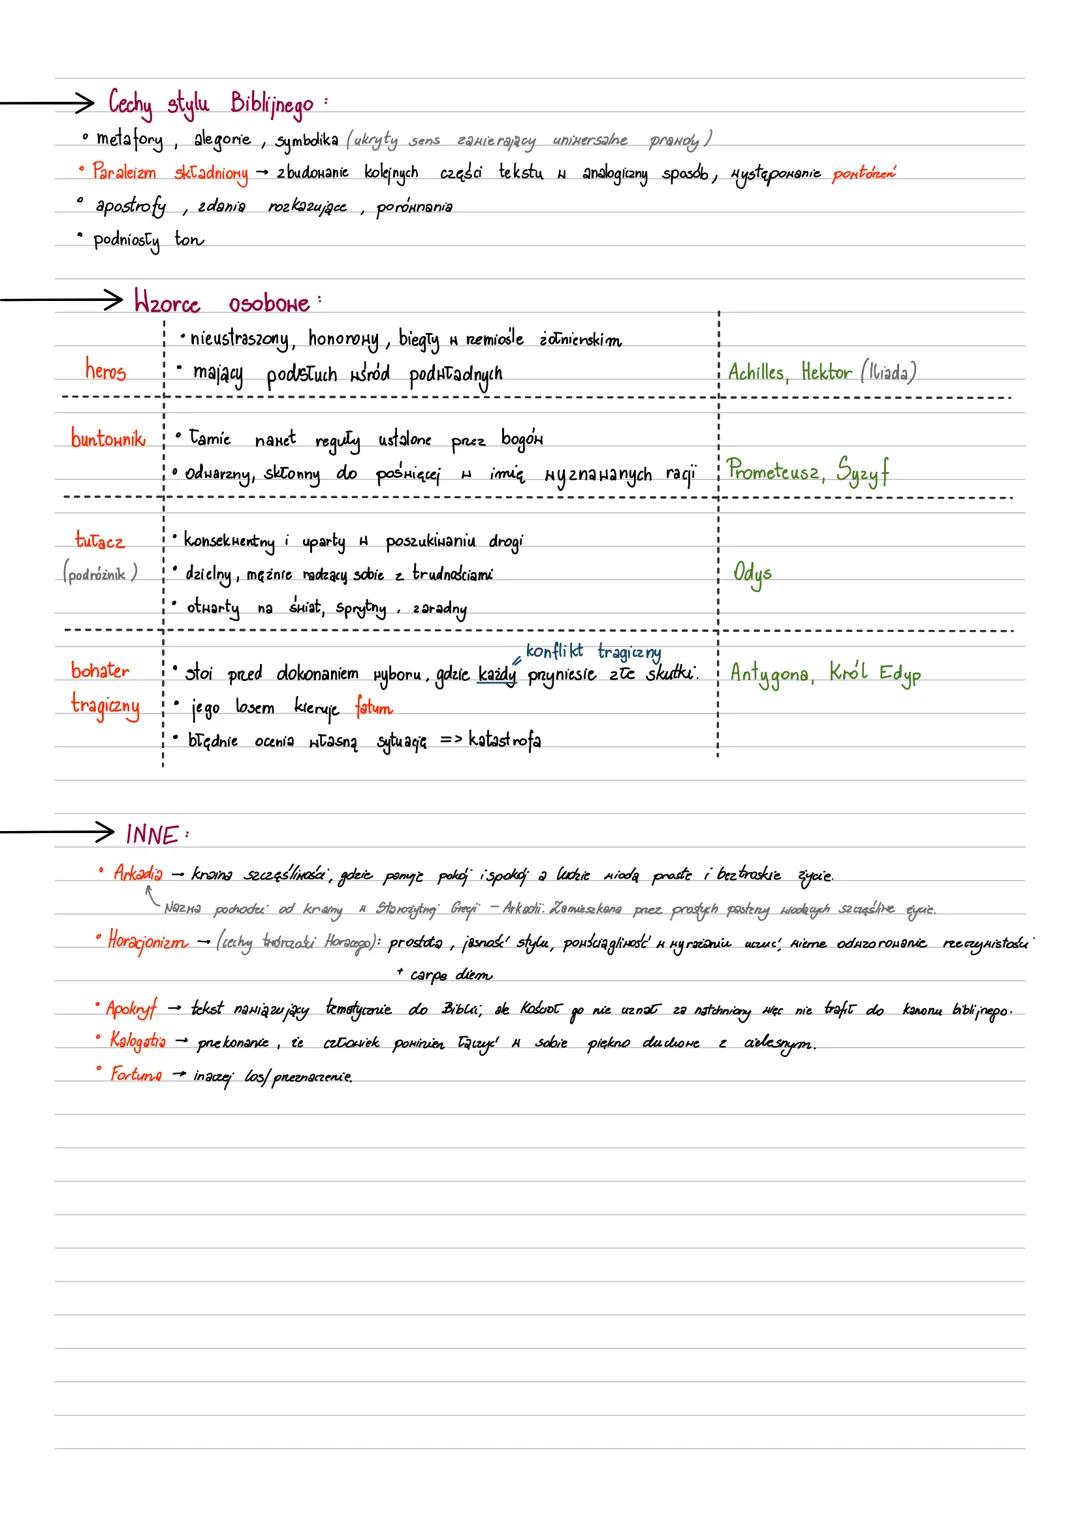 → Cechy stylu Biblijnego :
• metafory , alegorie , symbolika (ukryty sens zawierający uniwersalne prawdy)
• Paraleizm składniony → zbudowanie kolejnych części tekstu w analogiczny sposób, występowanie powtórzeń
• apostrofy , zdania rozkazujące , porównania
• podniosły ton
→ Wzorce osobowe :
• nieustraszony, honorowy, biegły w remiośle żołnierskim
heros • mający podsłuch wśród podwładnych Achilles, Hektor (Iliada)
buntownik • łamie nawet reguły ustalone przez bogów
• odwarzny, skłonny do poświęcej w imię wyznawanych racji Prometeusz, Syzyf
tułacz • konsekwentny i uparty w poszukiwaniu drogi
(podróżnik) • dzielny, mężnie radzący sobie z trudnościami Odys
• otwarty na świat, sprytny, zaradny
konflikt tragiczny
bohater • stoi przed dokonaniem wyboru, gdzie każdy przyniesie złe skutki. Antygona, Król Edyp
tragiczny • jego losem kieruje fatum
• błędnie ocenia własną sytuację => katastrofa
→ INNE :
• Arkadia → kraina szczęśliwości, gdzie panuje pokój i spokój a ludzie wiodą proste i beztroskie życie.
Nazwa pochodzi od krainy w Starożytnej Grecji – Arkadii. Zamieszkana przez prostych pasterzy wiodących szczęśliwe życie.
• Horacjonizm → (cechy twórczości Horacego): prostota, jasność stylu, powściągliwość w wyrażaniu uczuć, wierne odwzorowanie rzeczywistości
+ carpe diem
• Apokryf → tekst nawiązujący tematycznie do Biblii, ale Kościół go nie uznał za natchniony więc nie trafił do kanonu biblijnego.
• Kalogatia → przekonanie, że człowiek powinien łączyć w sobie piękno duchowe z cielesnym.
• Fortuna → inaczej los/przeznaczenie.